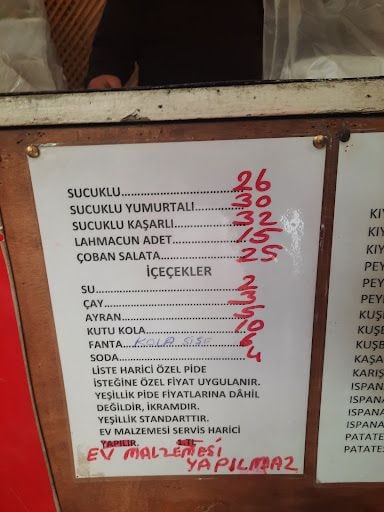 SUCUKLU..............................26
SUCUKLU YUMURTALI............30
SUCUKLU KAŞARLI................32
LAHMACUN ADET.................15
ÇOBAN SALATA....................25
İÇEÇEKLER
SU.....................................2
ÇAY....................................3
AYRAN................................5
KUTU KOLA........................10
FANTA KOLA ŞİŞE 6
SODA..................................4
LİSTE HARİCİ ÖZEL PİDE
İSTEĞİNE ÖZEL FİYAT UYGULANIR.
YEŞİLLİK PİDE FİYATLARINA DÂHİL
DEĞİLDİR, İKRAMDIR.
YEŞİLLİK STANDARTTIR.
EV MALZEMESİ SERVİS HARİCİ
YAPILIR. 1.TL
EV MALZEMESİ
YAPILMAZ
KIY
KIY
KIY
PEY
PEY
PEY
KUŞB
KUŞB
KUŞB
KAŞA
KARIŞ
ISPANA
ISPANA
ISPANA
ISPANA
PATATE
PATATES